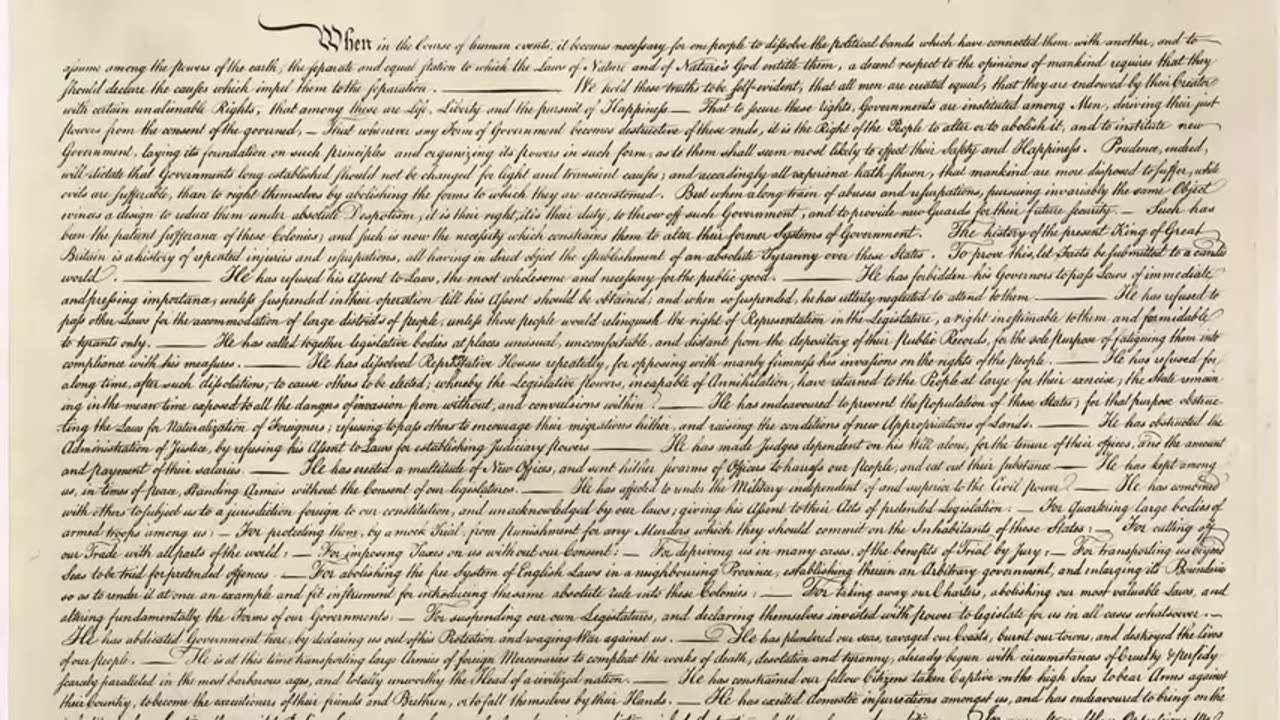 When in the Course of human events, it becomes necessary for one people to dissolve the political bands which have connected them with another, and to
assume among the powers of the earth, the separate and equal station to which the Laws of Nature and of Nature's God entitle them, a decent respect to the opinions of mankind requires that they
should declare the causes which impel them to the separation. ——— We hold these truths to be self-evident, that all men are created equal, that they are endowed by their Creator
with certain unalienable Rights, that among these are Life, Liberty and the pursuit of Happiness.— That to secure these rights, Governments are instituted among Men, deriving their just
powers from the consent of the governed, — That whenever any Form of Government becomes destructive of these ends, it is the Right of the People to alter or to abolish it, and to institute new
Government, laying its foundation on such principles and organizing its powers in such form, as to them shall seem most likely to effect their Safety and Happiness. Prudence, indeed,
will dictate that Governments long established should not be changed for light and transient causes; and accordingly all experience hath shewn, that mankind are more disposed to suffer, while
evils are sufferable, than to right themselves by abolishing the forms to which they are accustomed. But when a long train of abuses and usurpations, pursuing invariably the same Object
evinces a design to reduce them under absolute Despotism, it is their right, it is their duty, to throw off such Government, and to provide new Guards for their future security. — Such has
been the patient sufferance of these Colonies; and such is now the necessity which constrains them to alter their former Systems of Government. The history of the present King of Great
Britain is a history of repeated injuries and usurpations, all having in direct object the establishment of an absolute Tyranny over these States. To prove this, let Facts be submitted to a candid
world. ——— He has refused his Assent to Laws, the most wholesome and necessary for the public good. ——— He has forbidden his Governors to pass Laws of immediate
and pressing importance, unless suspended in their operation till his Assent should be obtained; and when so suspended, he has utterly neglected to attend to them. ——— He has refused to
pass other Laws for the accommodation of large districts of people, unless those people would relinquish the right of Representation in the Legislature, a right inestimable to them and formidable
to tyrants only. ——— He has called together legislative bodies at places unusual, uncomfortable, and distant from the depository of their Public Records, for the sole purpose of fatiguing them into
compliance with his measures. ——— He has dissolved Representative Houses repeatedly, for opposing with manly firmness his invasions on the rights of the people. ——— He has refused for
a long time, after such dissolutions, to cause others to be elected; whereby the Legislative powers, incapable of Annihilation, have returned to the People at large for their exercise; the State remain
ing in the mean time exposed to all the dangers of invasion from without, and convulsions within. ——— He has endeavoured to prevent the population of these States; for that purpose obstruc-
ting the Laws for Naturalization of Foreigners; refusing to pass others to encourage their migrations hither, and raising the conditions of new Appropriations of Lands. ——— He has obstructed the
Administration of Justice, by refusing his Assent to Laws for establishing Judiciary powers. ——— He has made Judges dependent on his Will alone, for the tenure of their offices, and the amount
and payment of their salaries. ——— He has erected a multitude of New Offices, and sent hither swarms of Officers to harrass our people, and eat out their substance. ——— He has kept among
us, in times of peace, Standing Armies without the Consent of our legislatures. ——— He has affected to render the Military independent of and superior to the Civil power. ——— He has combined
with others to subject us to a jurisdiction foreign to our constitution, and unacknowledged by our laws; giving his Assent to their Acts of pretended Legislation: — For Quartering large bodies of
armed troops among us: — For protecting them, by a mock Trial, from punishment for any Murders which they should commit on the Inhabitants of these States: — For cutting off
our Trade with all parts of the world: — For imposing Taxes on us without our Consent: — For depriving us in many cases, of the benefits of Trial by Jury: — For transporting us beyond
Seas to be tried for pretended offences — For abolishing the free System of English Laws in a neighbouring Province, establishing therein an Arbitrary government, and enlarging its Boundaries
so as to render it at once an example and fit instrument for introducing the same absolute rule into these Colonies: — For taking away our Charters, abolishing our most valuable Laws, and
altering fundamentally the Forms of our Governments: — For suspending our own Legislatures, and declaring themselves invested with power to legislate for us in all cases whatsoever. —
He has abdicated Government here, by declaring us out of his Protection and waging War against us. — He has plundered our seas, ravaged our Coasts, burnt our towns, and destroyed the lives
of our people. — He is at this time transporting large Armies of foreign Mercenaries to compleat the works of death, desolation and tyranny, already begun with circumstances of Cruelty & perfidy
scarcely paralleled in the most barbarous ages, and totally unworthy the Head of a civilized nation. — He has constrained our fellow Citizens taken Captive on the high Seas to bear Arms against
their Country, to become the executioners of their friends and Brethren, or to fall themselves by their Hands. — He has excited domestic insurrections amongst us, and has endeavoured to bring on the